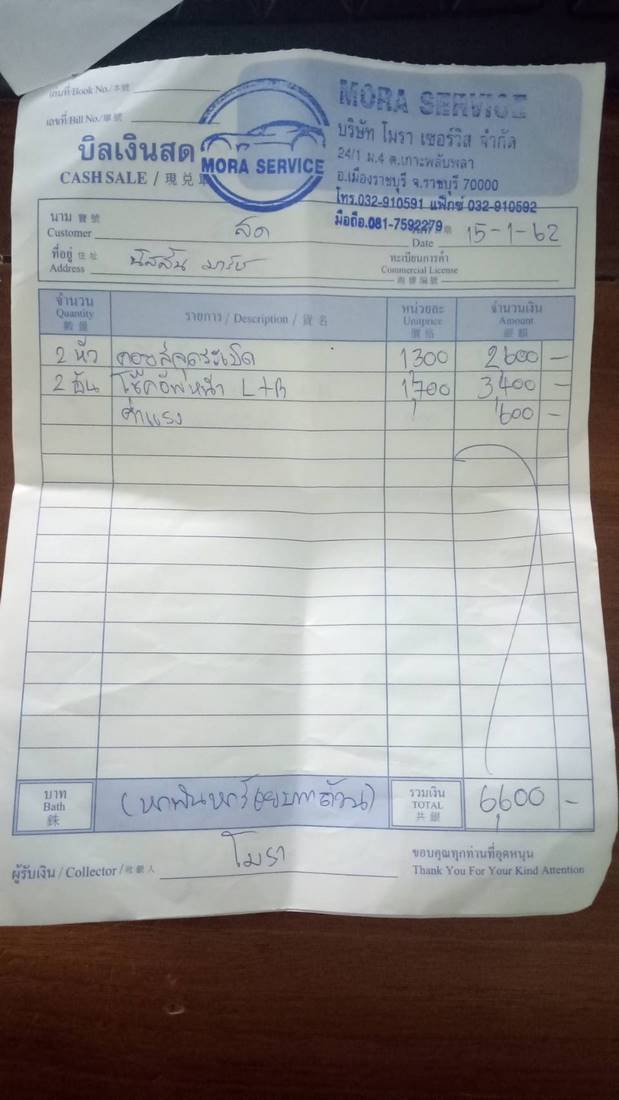 เล่มที่/Book No./本號
เลขที่/Bill No./單號
บิลเงินสด
CASH SALE / 現兑單
MORA SERVICE
MORA SERVICE
บริษัท โมรา เซอร์วิส จำกัด
24/1 ม.4 ต.เกาะพลับพลา
อ.เมืองราชบุรี จ.ราชบุรี 70000
โทร.032-910591 แฟ็กซ์ 032-910592
มือถือ.081-7592279
นาม 寶號
Customer สด
Date 15-1-62
ที่อยู่ 住址
Address นิสสัน มาร์ช
ทะเบียนการค้า
Commercial License
商標編號
จำนวน
Quantity
數量
รายการ / Description / 貨名
หน่วยละ
Unitprice
價格
จำนวนเงิน
Amount
銀額
2 หัว 1300 2600 -
2 อัน โช๊คอัพหน้า L+R 1,700 3,400 -
ค่าแรง 600 -
บาท
Bath
銖
(หกพันหกร้อยบาทถ้วน)
รวมเงิน
TOTAL
共銀
6,600 -
ผู้รับเงิน / Collector / 收款人 โมรา
ขอบคุณทุกท่านที่อุดหนุน
Thank You For Your Kind Attention